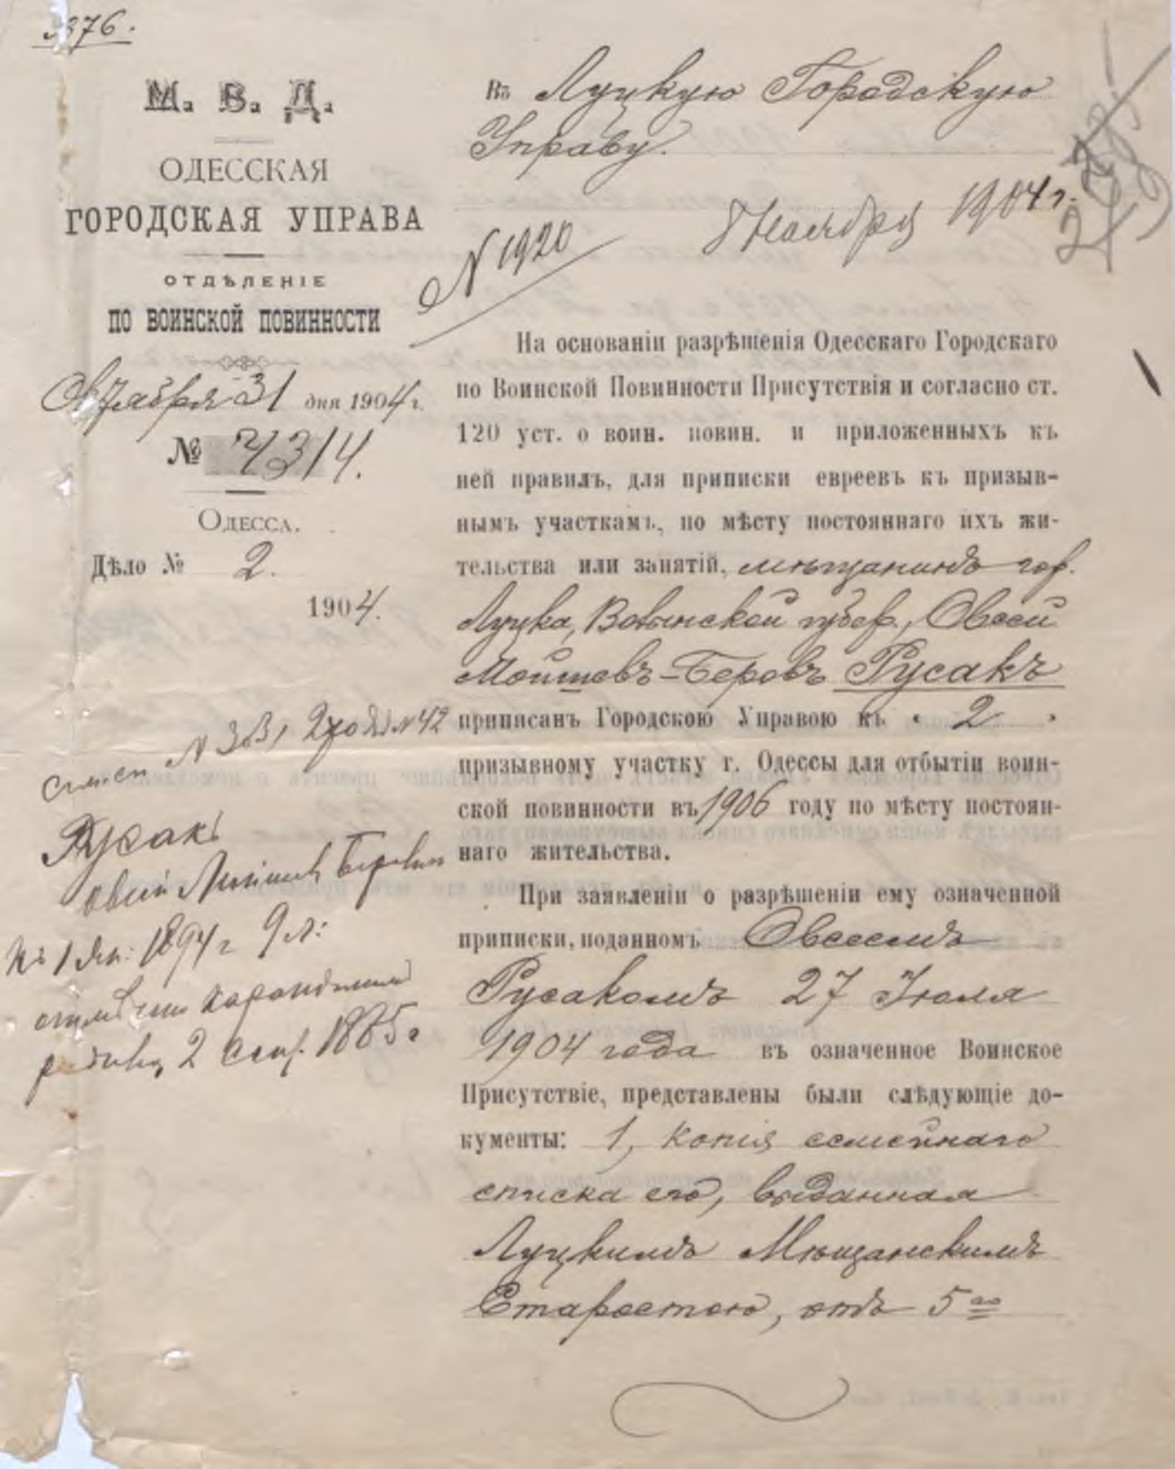 376.
М. В. Д.
ОДЕССКАЯ
ГОРОДСКАЯ УПРАВА
ОТДѢЛЕНІЕ
ПО ВОИНСКОЙ ПОВИННОСТИ
Октября 31 дня 1904 г.
№ 4314.
ОДЕССА.
Дѣло № 2.
1904.
Въ Луцкую Городскую
Управу.
8 Ноября 1904 г.
N 1920
На основаніи разрѣшенія Одесскаго Городскаго
по Воинской Повинности Присутствія и согласно ст.
120 уст. о воин. повин. и приложенныхъ къ
ней правилъ, для приписки евреевъ къ призыв-
нымъ участкамъ, по мѣсту постояннаго ихъ жи-
тельства или занятій, мѣщанинъ гор.
Луцка, Волынской губер., Овсей
Мошевъ-Беровъ Русакъ
приписанъ Городскою Управою къ „ 2 “
призывному участку г. Одессы для отбытіи воин-
ской повинности въ 1906 году по мѣсту постоян-
наго жительства.
При заявленіи о разрѣшеніи ему означенной
приписки, поданномъ Овсеемъ
Русакомъ 27 Іюля
1904 года въ означенное Воинское
Присутствіе, представлены были слѣдующіе до-
кументы: 1, копія семейнаго
списка его, выданная
Луцкимъ Мѣщанскимъ
Старостою, отъ 5го
N 42
Русакъ
Овсей
къ 1 Ян. 1894 г 9 л:
2 1885 г